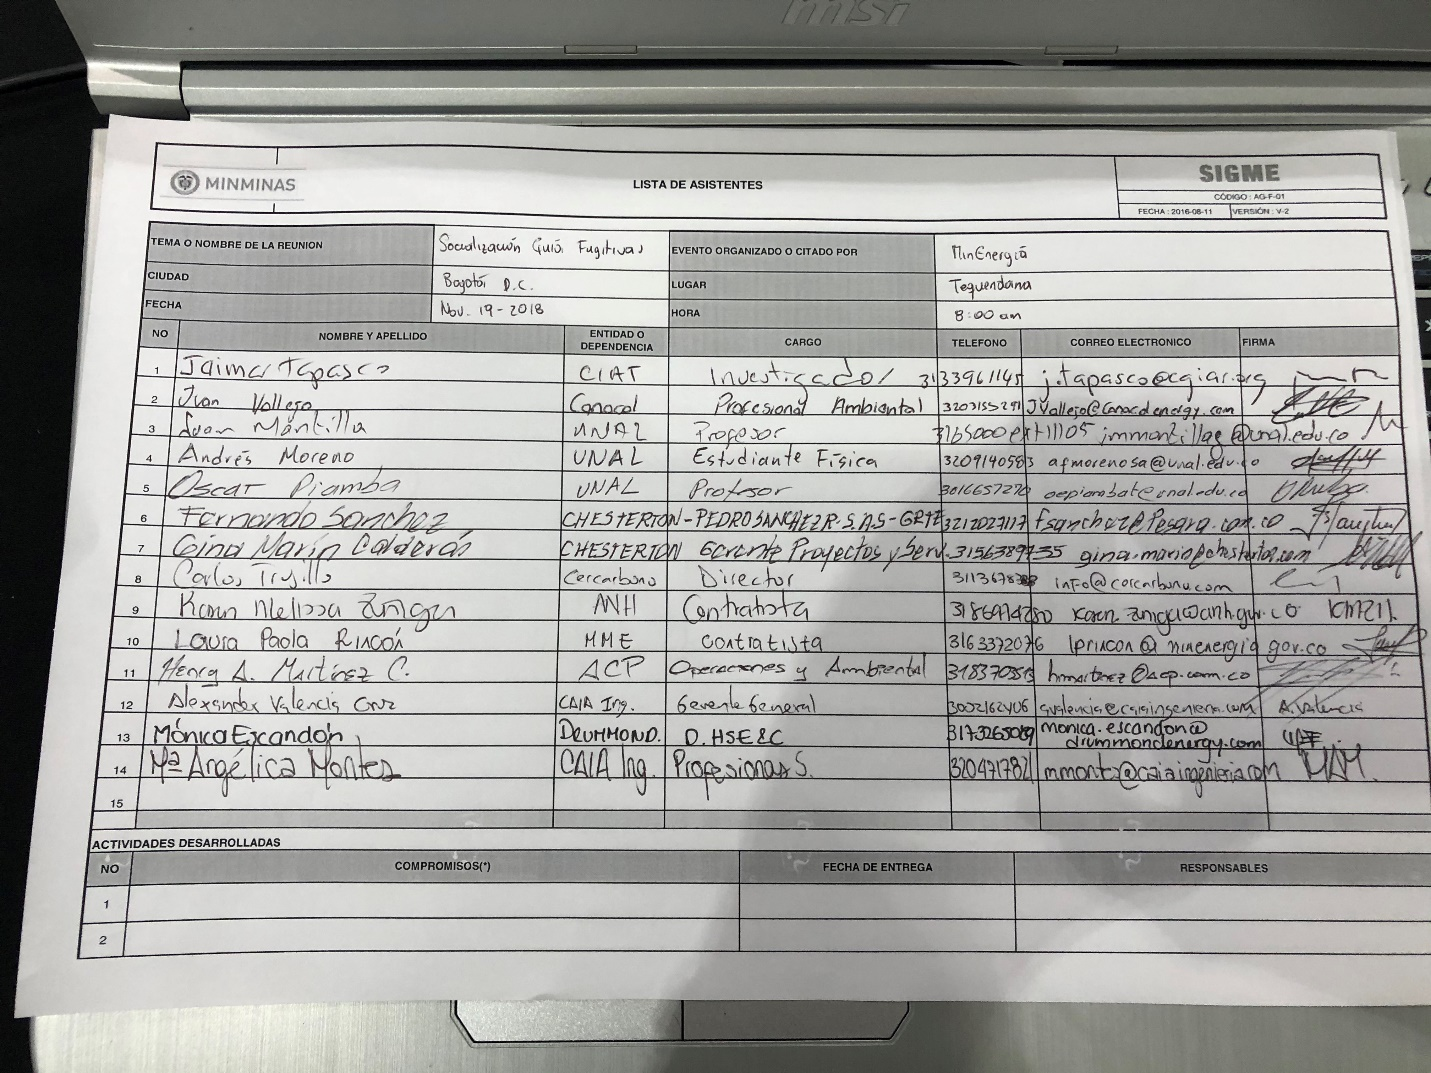 msi
MINMINAS
LISTA DE ASISTENTES
SIGME
CÓDIGO : AG-F-01
FECHA : 2016-08-11 VERSIÓN : V-2
TEMA O NOMBRE DE LA REUNION Socialización Guía Fugitivas EVENTO ORGANIZADO O CITADO POR MinEnergía
CIUDAD Bogotá D.C. LUGAR Tequendama
FECHA Nov. 19-2018 HORA 8:00 am
NO NOMBRE Y APELLIDO ENTIDAD O DEPENDENCIA CARGO TELEFONO CORREO ELECTRONICO FIRMA
1 Jaime Tapasco CIAT Investigador 3133961145 j.tapasco@cgiar.org
2 Juan Vallejo Canacol Profesional Ambiental 3203155291 JVallejo@Canacolenergy.com
3 Juan Mantilla UNAL Profesor 3165000 ext 11105 jmmantillag@unal.edu.co
4 Andrés Moreno UNAL Estudiante Física 3209140583 afmorenosa@unal.edu.co
5 Oscar Piamba UNAL Profesor 3016657270 oepiambat@unal.edu.co
6 Fernando Sanchez CHESTERTON-PEDRO SANCHEZ R-S.A.S-GRTE 3212027117 fsanchez@Pesara.com.co
7 Gina Marín Calderón CHESTERTON Gerente Proyectos y Serv. 3156389735 gina.marin@chesterton.com
8 Carlos Trujillo Cercarbono Director info@cercarbono.com
9 Karen Melissa Zuñiga ANH Contratista karen.zuniga@anh.gov.co KMZU
10 Laura Paola Rincón MME contratista 3163372076 lprincon@minenergia.gov.co
11 Henry A. Martínez C. ACP Operaciones y Ambiental hmartinez@acp.com.co
12 Alexander Valencia Cruz CAIA Ing. Gerente General 3002162406 avalencia@caiaingenieria.com A.Valencia
13 Mónica Escandón DRUMMOND. D. HSE&C 3173265089 monica.escandon@
drummondenergy.com
14 Mª Angélica Montes CAIA Ing. Profesional S. 320471782 mmontes@caiaingenieria.com MAM.
15
ACTIVIDADES DESARROLLADAS
NO COMPROMISOS(*) FECHA DE ENTREGA RESPONSABLES
1
2